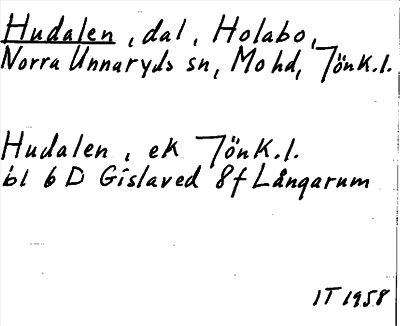 Hudalen, dal, Holabo,
Norra Unnaryds sn, Mo hd, Jönk.l.
Hudalen, ek Jönk.l.
bl 6 D Gislaved 8f Långarum
IT 1958